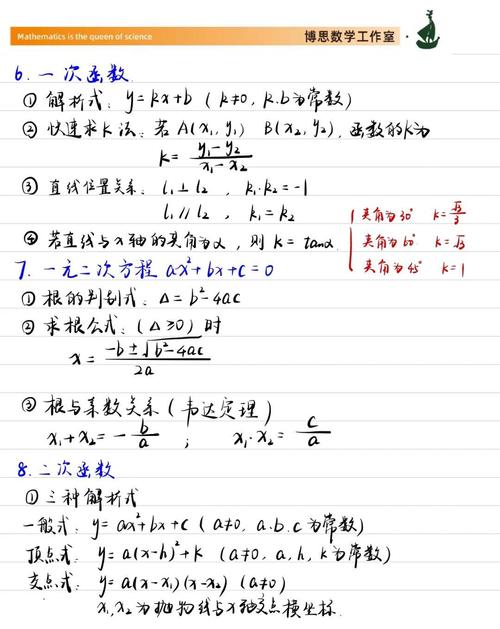 Mathematics is the queen of science
博思数学工作室
6. 一次函数
① 解析式: y=kx+b (k≠0, k.b为常数)
② 快速求k法: 若A(x₁,y₁) B(x₂,y₂), 函数的k为
k= (y₁-y₂)/(x₁-x₂)
③ 直线位置关系: l₁⊥l₂, k₁·k₂=-1
l₁∥l₂, k₁=k₂
夹角为30° k=√3/3
④ 若直线与x轴的夹角为α, 则k=tanα.
夹角为60° k=√3
夹角为45° k=1
7. 一元二次方程 ax²+bx+c=0
① 根的判别式: Δ=b²-4ac
② 求根公式: (Δ≥0) 时
x= (-b±√(b²-4ac))/2a
③ 根与系数关系 (韦达定理)
x₁+x₂=-b/a ; x₁·x₂= c/a
8. 二次函数
① 三种解析式
一般式: y=ax²+bx+c (a≠0, a.b.c为常数)
顶点式: y=a(x-h)²+k (a≠0, a,h,k为常数)
交点式: y=a(x-x₁)(x-x₂) (a≠0)
x₁,x₂为抛物线与x轴交点横坐标.